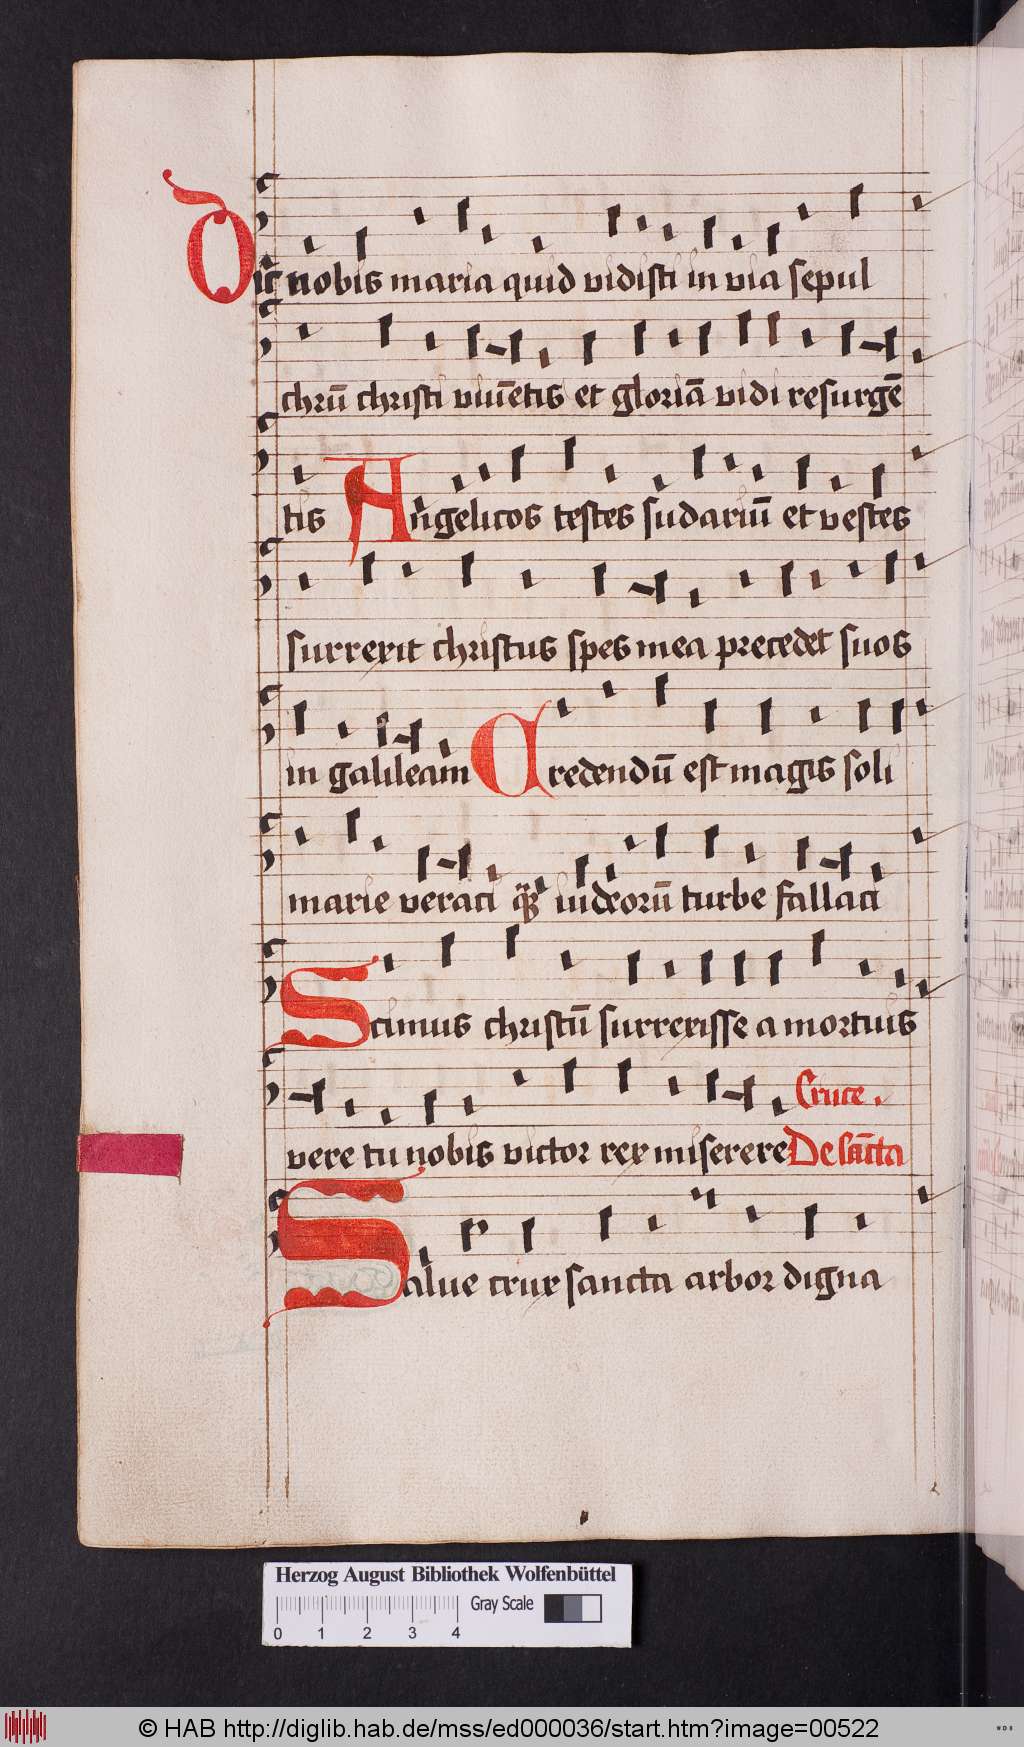 Dic nobis maria quid vidisti in via sepul
chrū christi viuētis et gloriā vidi resurgē
tis Angelicos testes sudariū et vestes
surrexit christus spes mea precedet suos
in galileam Credendū est magis soli
marie veraci iudeorū turbe fallaci
Scimus christū surrexisse a mortuis
Cruce.
vere tu nobis victor rex miserere De sācta
Salue crux sancta arbor digna
Herzog August Bibliothek Wolfenbüttel
Gray Scale
0 1 2 3 4
© HAB http://diglib.hab.de/mss/ed000036/start.htm?image=00522